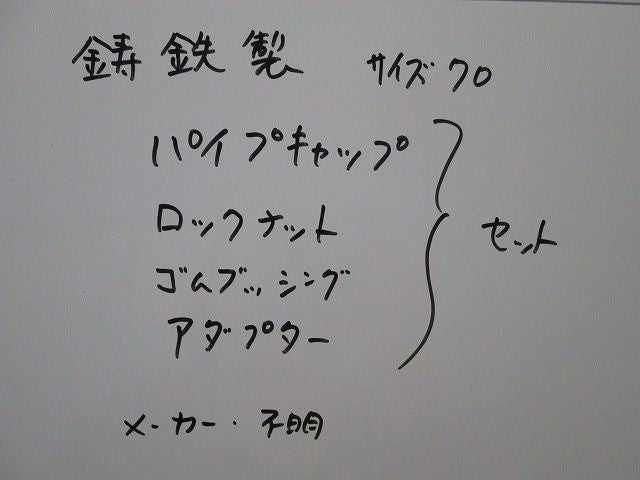 鋳鉄製 サイズ70
パイプキャップ
ロックナット
ゴムブッシング
アダプター
セット
メーカー・不明